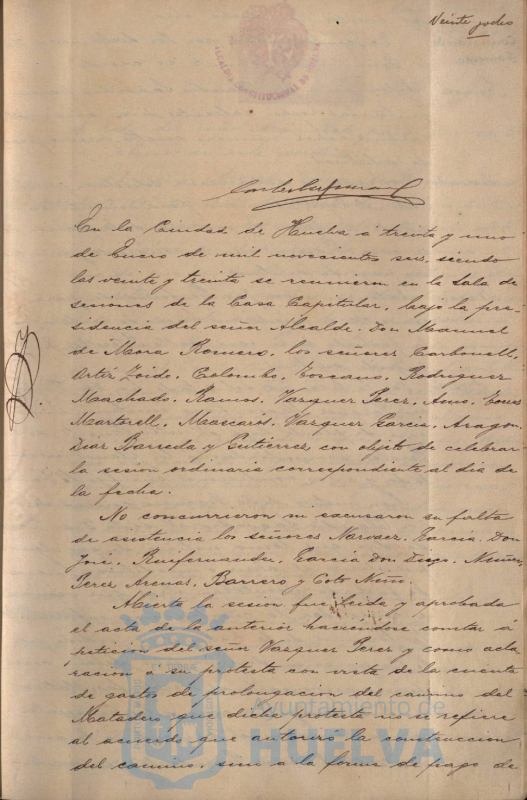 Veinte y dos
ALCALDIA CONSTITUCIONAL DE HUELVA
En la Ciudad de Huelva á treinta y uno
de Enero de mil novecientos seis, siendo
las veinte y treinta se reunieron en la Sala de
sesiones de la Casa Capitular, bajo la pre-
sidencia del señor Alcalde. Don Manuel
de Mora Romero, los señores Carbonell,
Ortiz, Zoido, Colombo, Toscano, Rodriguez
Machado, Ramos, Vazquez Perez, Amo, Torres
Martorell, Mascarós, Vazquez Garcia, Aragon,
Diaz Barreda y Gutierrez, con objeto de celebrar
la sesion ordinaria correspondiente al dia de
la fecha.
No concurrieron ni excusaron su falta
de asistencia los señores Narvaez, Garcia Don
José, Ruifernandez, Garcia Don Diego, Nuñez,
Perez Arenas, Barrero y Coto Niño.
Abierta la sesion fue leida y aprobada
el acta de la anterior haciéndose constar á
peticion del señor Vazquez Perez y como acla
racion á su protesta con vista de la cuenta
de gastos de prolongacion del camino del
Matadero que dicha protesta no se refiere
al acuerdo que autorizó la construccion
del camino, sino á la forma de pago de
Ayuntamiento de
HUELVA